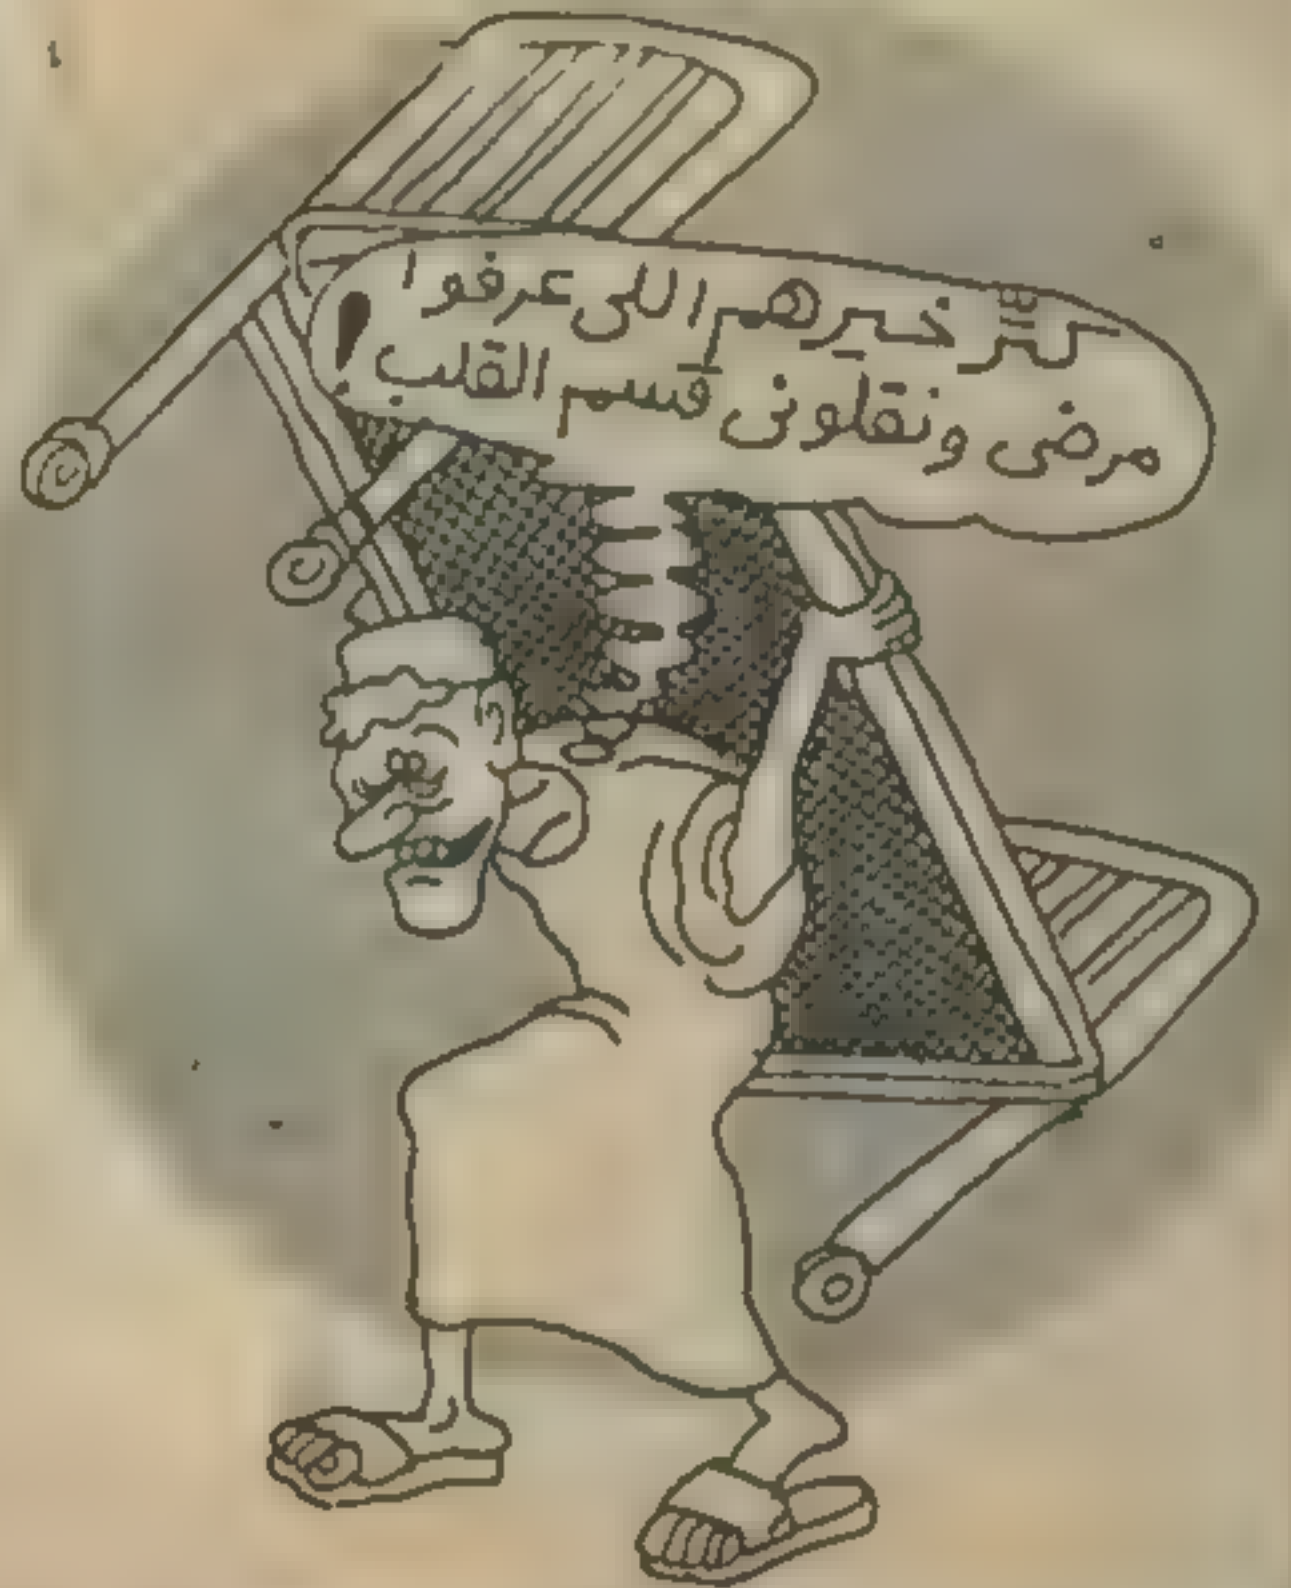 كتر خيرهم اللى عرفوا
مرضى ونقلونى قسم القلب !